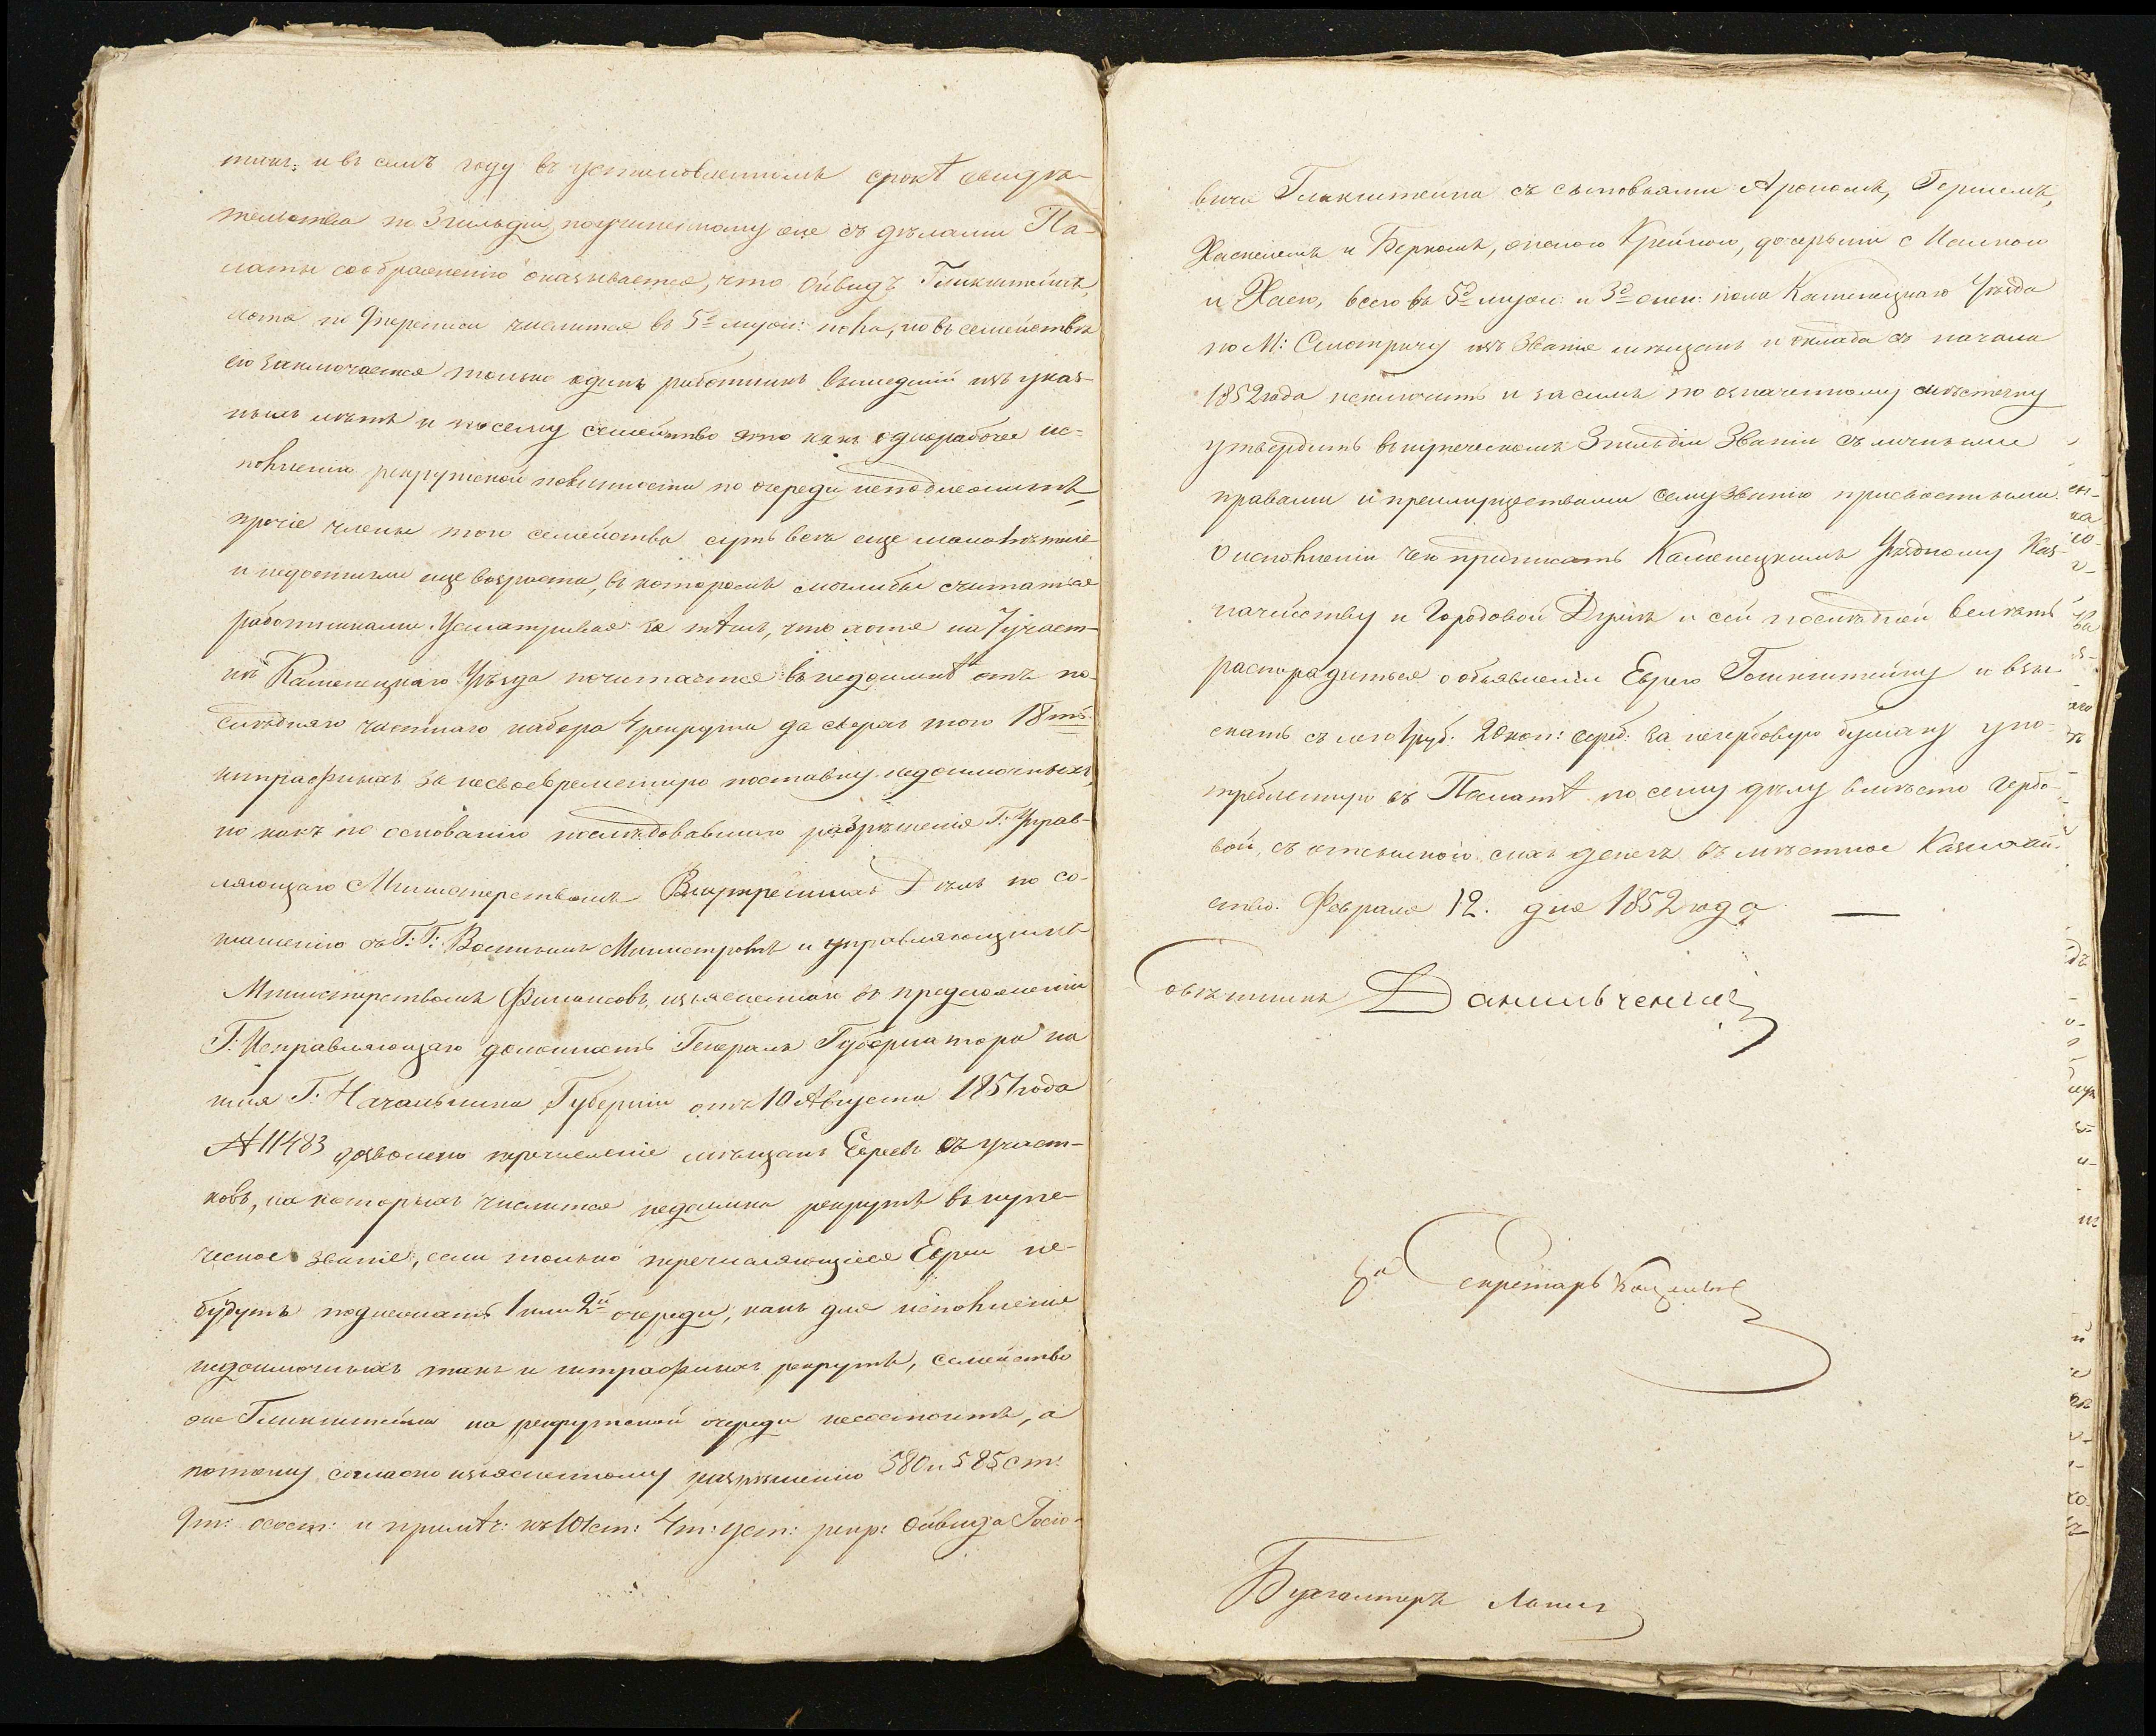 и въ семъ году въ установленномъ срокѣ свидѣ-
тельства по 3 гильдіи, по учиненному сему съ дѣлами Па-
латы соображенію оказывается, что Ойвидъ Гликштейнъ,
хотя по 9 переписи числится въ 5ᵗⁱ мужск: пола, но въ семействѣ
его заключается только одинъ работникъ вышедшій изъ указ-
ныхъ лѣтъ и по сему семейство это какъ однорабочее ис-
полненію рекрутской повинности по очереди неподлежитъ,
прочіе члены того семейства суть всѣ еще малолѣтніе
и недостигли еще возраста, въ которомъ моглибы считаться
работниками. Усматривая за тѣмъ, что хотя на 7 участ-
кѣ Каменецкаго Уѣзда почитается въ недоимкѣ отъ по-
слѣдняго частнаго набора 4 рекрута да сверхъ того 18ᵗᵗ
штрафныхъ за несвоевременную поставку недоимочныхъ,
но какъ по основанію послѣдовавшаго разрѣшенія Г. Управ-
ляющаго Министерствомъ Внутреннихъ Дѣлъ по со-
глашенію съ Г: Г: Военнымъ Министромъ и управляющимъ
Министерствомъ Финансовъ, изъясненнаго въ предложеніи
Г: Исправляющаго должность Генералъ Губернатора на
имя Г: Начальника Губерніи отъ 10 Августа 1851 года
№ 11483 дозволено перечисленіе мѣщанъ Евреевъ съ участ-
ковъ, на которыхъ числится недоимка рекрутъ въ купе-
ческое званіе, если только перечисляющіеся Евреи не-
будутъ подлежать 1 или 2й очереди, какъ для исполненія
недоимочныхъ такъ и штрафныхъ рекрутъ, семейство
оне Гликштейна на рекрутской очереди несостоитъ, а
потому согласно изъясненному разрѣшенію 580 и 585 ст:
9 т: о сост: и примѣч: къ 101 ст: 4 т: уст: рекр: Ойвида Госіо-
вича Гликштейна съ сыновьями Арономъ, Гершемъ,
Хаскелемъ и Беркомъ, женою Крейною, дочерьми
и Хаею, всего въ 5ᵒ мужск: и 3ᵒ женск: пола Каменецкаго Уѣзда
по М: Смотричу изъ званія мѣщанъ и оклада съ начала
1852 года исключить и за симъ по означенному мѣстечку
утвердить въ купеческомъ 3 гильдіи званіи съ личными
правами и преимуществами сему званію присвоенными.
О исполненіи чего предписать Каменецкимъ Уѣздному Каз-
начейству и Городовой Думѣ и сей послѣдней велѣть
распорядиться о объявленіи Еврею Гликштейну и взы-
скать съ него 1 руб. 20 коп: сереб: за негербовую бумагу упо-
требленную въ Палатѣ по сему дѣлу вмѣсто гербо-
вой, съ отсылкою сихъ денегъ въ мѣстное Казначей-
ство. Февраля 12. дня 1852 года
Совѣтникъ Данильченко
Секретарь
Бухгалтеръ